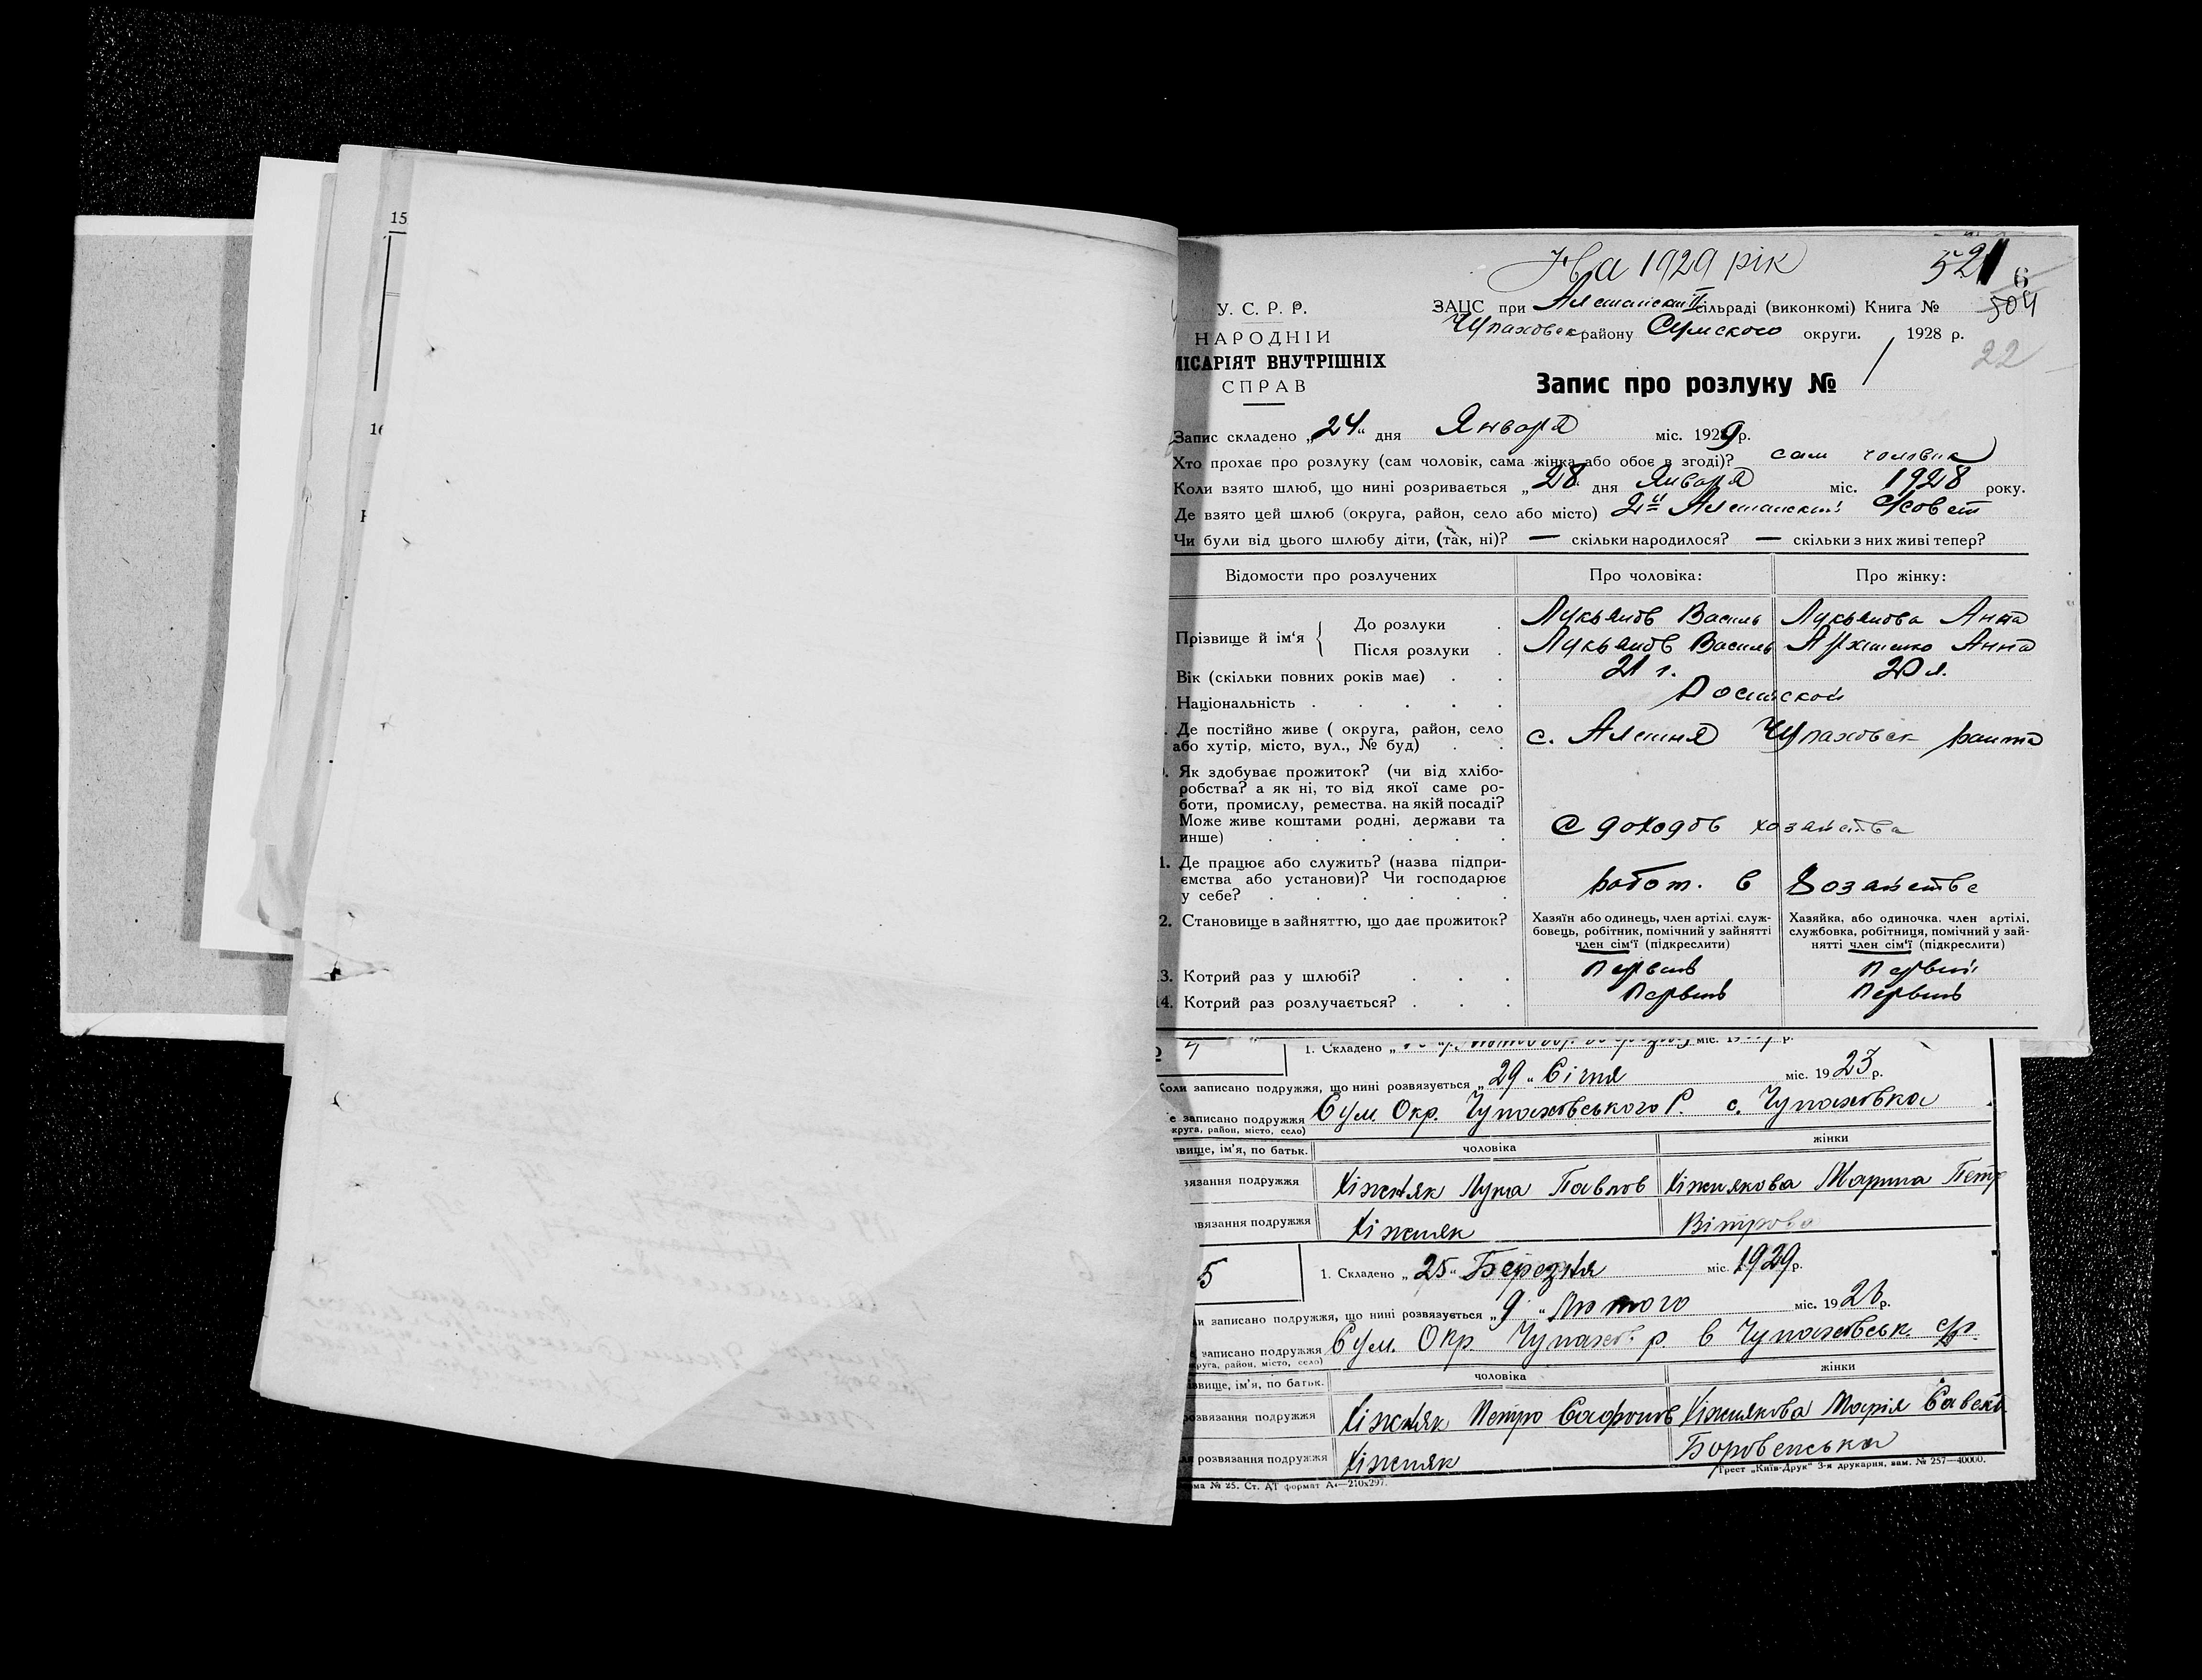 15
16
На 1929 рік
521
6
504
22
У. С. Р. Р.
НАРОДНІЙ
МІСАРІЯТ ВНУТРІШНІХ
СПРАВ
ЗАЦС при Алешанской II сільраді (виконкомі) Книга №
Чупаховск району Сумского округи. 1928 р.
Запис про розлуку № 1
Запис складено „24“ дня Января міс. 1929 р.
Хто прохає про розлуку (сам чоловік, сама жінка або обоє в згоді)? сам чоловик
Коли взято шлюб, що нині розривається „28“ дня Января міс. 1928 року.
Де взято цей шлюб (округа, район, село або місто) 2й Алешанский С/совет
Чи були від цього шлюбу діти, (так, ні)? — скільки народилося? — скільки з них живі тепер?
Відомости про розлучених Про чоловіка: Про жінку:
Прізвище й ім‘я
До розлуки Лукьянов Василь Лукьянова Анна
Після розлуки Лукьянов Василь Архипенко Анна
Вік (скільки повних років має) 21 г. 20 л.
Національність
Де постійно живе ( округа, район, село
або хутір, місто, вул., № буд) с. Алешня Чупаховск района
Як здобуває прожиток? (чи від хлібо-
робства? а як ні, то від якої саме ро-
боти, промислу, ремества. на якій посаді?
Може живе коштами родні, держави та
инше) С доходов хозайства
1. Де працює або служить? (назва підпри-
ємства або установи)? Чи господарює
у себе? работ. в Хозайстве
2. Становище в зайняттю, що дає прожиток?
Хазяїн або одинець, член артілі, служ-
бовець, робітник, помічний у зайнятті
член сім‘ї (підкреслити)
Хазяйка, або одиночка, член артілі,
службовка, робітниця, помічний у зай-
нятті член сім‘ї (підкреслити)
3. Котрий раз у шлюбі? Первий Первий
14. Котрий раз розлучається? Первий Первий
4
1. Складено „ міс. 19 р.
Коли записано подружжя, що нині розвязується „29“ Січня міс. 1923 р.
е записано подружжя Сум. Окр. Чупахівського Р. с. Чупахівка
круга, район, місто, село)
звище, ім’я, по батьк. чоловіка жінки
язання подружжя Кіжняк Лука Павлов Кіжнякова Марина Петр
звязання подружжя Кіжняк Вітрова
5
1. Складено „25“ Березня міс. 1929 р.
и записано подружжя, що нині розвязується „9“ Лютого міс. 1928 р.
записано подружжя Сум. Окр. Чупахів. р. в Чупахівськ. с/р.
круга, район, місто, село)
звище, ім’я, по батьк. чоловіка жінки
озвязання подружжя Кіжняк Петро Сафонов Кіжнякова Марія Савеків
розвязання подружжя Кіжняк Боровенська
ма № 25. Ст. АТ формат А4—210х297.
Трест „Київ-Друк“ 3-я друкарня, зам. № 257—40000.